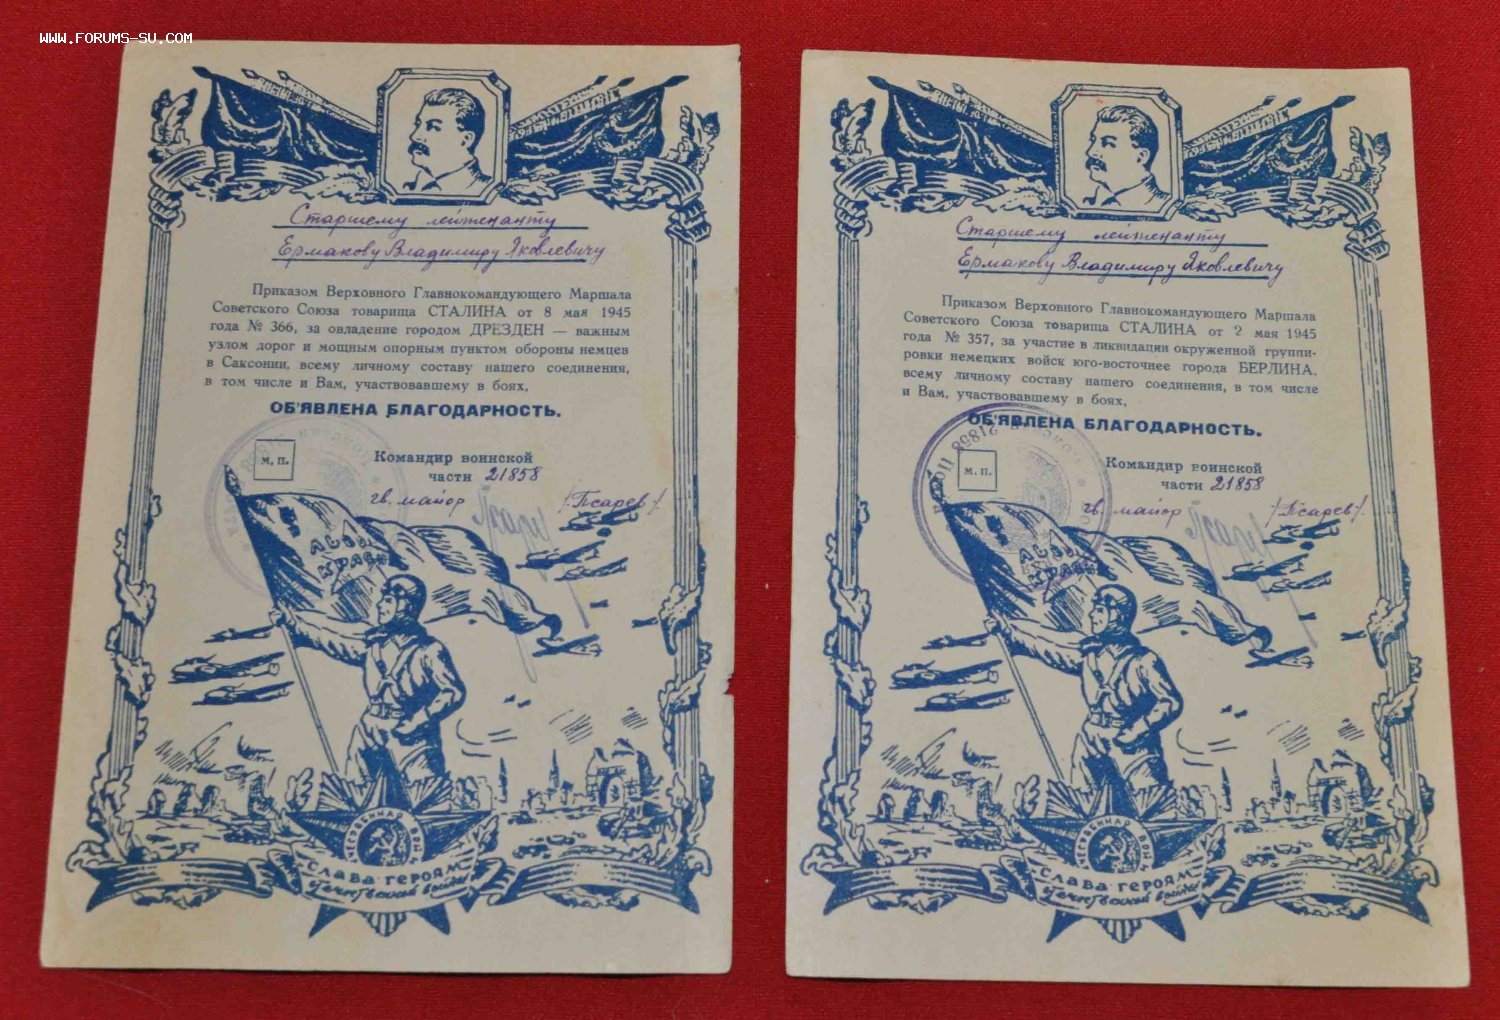 WWW.FORUMS-SU.COM
Старшему лейтенанту
Ермакову Владимиру Яковлевичу
Приказом Верховного Главнокомандующего Маршала
Советского Союза товарища СТАЛИНА от 8 мая 1945
года № 366, за овладение городом ДРЕЗДЕН — важным
узлом дорог и мощным опорным пунктом обороны немцев
в Саксонии, всему личному составу нашего соединения,
в том числе и Вам, участвовавшему в боях,
ОБ'ЯВЛЕНА БЛАГОДАРНОСТЬ.
М. П.
Командир воинской
части 21858
гв. майор /Псарев/.
СЛАВА ГЕРОЯМ
Отечественной войны
Старшему лейтенанту
Ермакову Владимиру Яковлевичу
Приказом Верховного Главнокомандующего Маршала
Советского Союза товарища СТАЛИНА от 2 мая 1945
года № 357, за участие в ликвидации окруженной группи-
ровки немецких войск юго-восточнее города БЕРЛИНА,
всему личному составу нашего соединения, в том числе
и Вам, участвовавшему в боях,
ОБ'ЯВЛЕНА БЛАГОДАРНОСТЬ.
21858
М. П.
Командир воинской
части 21858
гв. майор /Псарев/.
СЛАВА ГЕРОЯМ
Отечественной войны